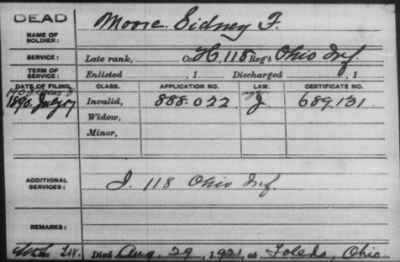 DEAD
NAME OF SOLDIER: Moore Sidney F.
SERVICE: Late rank, Co. H, 118 Reg't Ohio Inf.
TERM OF SERVICE: Enlisted , 1 Discharged , 1
DATE OF FILING. CLASS. APPLICATION NO. LAW. CERTIFICATE NO.
1890. July 07 Invalid, 888.022 J. 689.131
Widow,
Minor,
ADDITIONAL SERVICES: I. 118 Ohio Inf.
REMARKS:
Died Aug. 29, 1921, at Toledo, Ohio